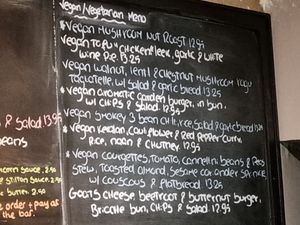 Vegan/Vegetarian Menu
*Vegan Mushroom Nut Roast 12.95
Vegan Tofu "Chicken", leek, garlic & white
wine Pie 13.25
Vegan Walnut, lentil & Chestnut Mushroom Ragu
Tagliatelle, w/ salad & garlic bread 13.25
*Vegan Aromatic Garden Burger, in bun,
w/ chips & salad 12.95
Vegan Smokey 3 Bean Chilli, rice, salad & garlic bread
*Vegan Cauliflower & Red Pepper Curry,
Rice, naan & chutney 12.95
*Vegan Courgettes, Tomato, Cannellini Beans & Peas
Stew, Toasted almond, sesame
w/ couscous & flatbread 13.25
Goats Cheese, Beetroot & Butternut Burger,
Brioche bun, chips & salad 12.95
& salad 13.95
eans
corn sauce 2.95
& stilton sauce 2.95
butter 2.95
order & pay at
the bar.